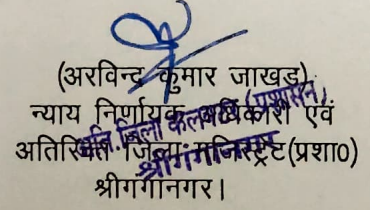 (अरविन्द कुमार जाखड)
न्याय निर्णायक अधिकारी एवं
अतिरिक्त जिला मजिस्ट्रेट(प्रशा0)
श्रीगंगानगर।
अति. जिला कलक्टर (प्रशासन)
श्रीगंगानगर